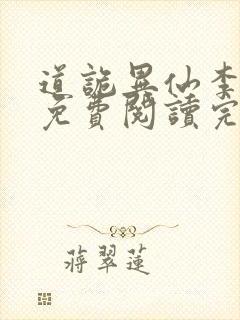 道詭異仙李
免費閱讀完
蔣翠蓮